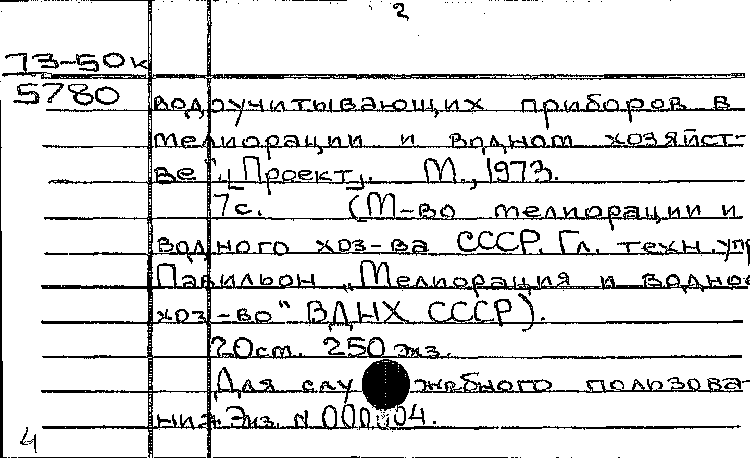 2
73-50к
5780
водоучитывающих приборов в
мелиорации и водном хозяйст-
ве". [Проект]. М., 1973.
7с. (М-во мелиорации и
водного хоз-ва СССР. Гл. техн. упр
Павильон „Мелиорация и водное
хоз-во" ВДНХ СССР).
20см. 250 экз.
Для служебного пользова-
ния. Экз. N 000004.
4